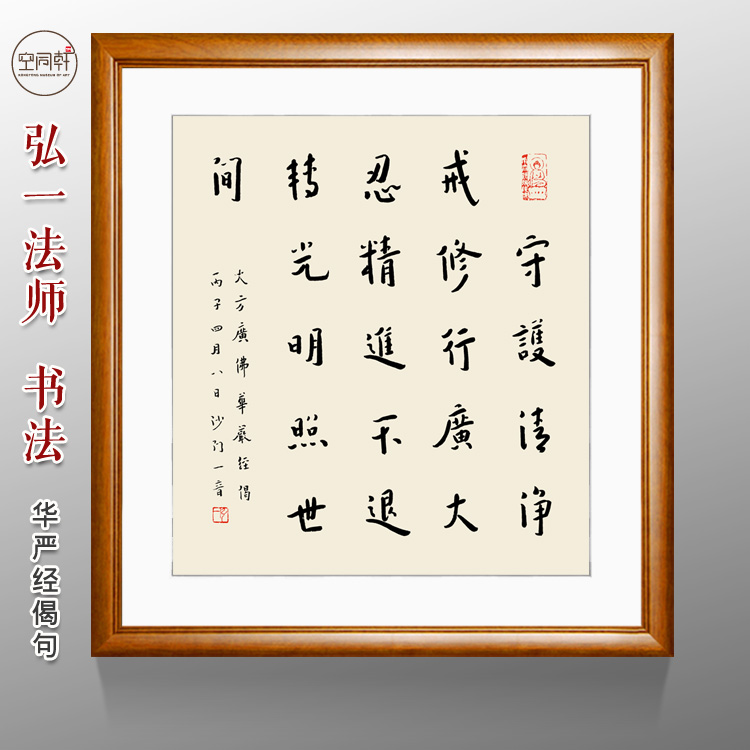 空同軒
KONGTONG MUSEUM OF ART
弘一法师 书法
华严经偈句
守護清淨
戒修行廣大
忍精進不退
轉光明照世
間
大方廣佛華嚴經偈
丙子四月八日沙門一音